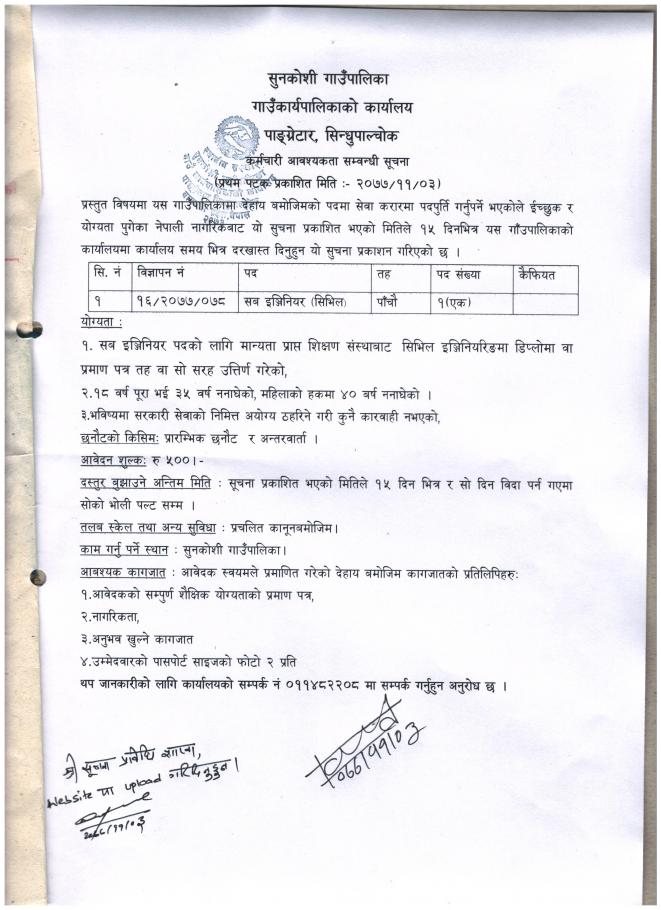 सुनकोशी गाउँपालिका
गाउँकार्यपालिकाको कार्यालय
पाङ्ग्रेटार, सिन्धुपाल्चोक
कर्मचारी आबश्यकता सम्वन्धी सूचना
(प्रथम पटक प्रकाशित मिति :- २०७७/११/०३)
प्रस्तुत विषयमा यस गाउँपालिकामा देहाय बमोजिमको पदमा सेवा करारमा पदपुर्ति गर्नुपर्ने भएकोले ईच्छुक र
योग्यता पुगेका नेपाली नागरिकबाट यो सुचना प्रकाशित भएको मितिले १५ दिनभित्र यस गाँउपालिकाको
कार्यालयमा कार्यालय समय भित्र दरखास्त दिनुहुन यो सुचना प्रकाशन गरिएको छ ।
सि. नं विज्ञापन नं पद तह पद संख्या कैफियत
१ १६/२०७७/०७८ सब इञ्जिनियर (सिभिल) पाँचौ १(एक)
योग्यता :
१. सब इञ्जिनियर पदको लागि मान्यता प्राप्त शिक्षण संस्थाबाट सिभिल इञ्जिनियरिङमा डिप्लोमा वा
प्रमाण पत्र तह वा सो सरह उत्तिर्ण गरेको,
२.१८ वर्ष पूरा भई ३५ वर्ष ननाघेको, महिलाको हकमा ४० बर्ष ननाघेको ।
३.भविष्यमा सरकारी सेवाको निमित्त अयोग्य ठहरिने गरी कुनै कारवाही नभएको,
छनौटको किसिमः प्रारम्भिक छनौट र अन्तरवार्ता ।
आवेदन शुल्कः रु ५००।-
दस्तुर बुझाउने अन्तिम मिति : सूचना प्रकाशित भएको मितिले १५ दिन भित्र र सो दिन विदा पर्न गएमा
सोको भोली पल्ट सम्म ।
तलब स्केल तथा अन्य सुविधा : प्रचलित कानूनबमोजिम।
काम गर्नु पर्ने स्थान : सुनकोशी गाउँपालिका।
आबश्यक कागजात : आवेदक स्वयमले प्रमाणित गरेको देहाय बमोजिम कागजातको प्रतिलिपिहरुः
१.आवेदकको सम्पुर्ण शैक्षिक योग्यताको प्रमाण पत्र,
२.नागरिकता,
३.अनुभव खुल्ने कागजात
४.उम्मेदवारको पासपोर्ट साइजको फोटो २ प्रति
थप जानकारीको लागि कार्यालयको सम्पर्क नं ०११४८२२०८ मा सम्पर्क गर्नुहुन अनुरोध छ ।
श्री सूचना प्रविधि शाखा,
Website मा upload गरिदिनुहुन।
२०७७/११/०३